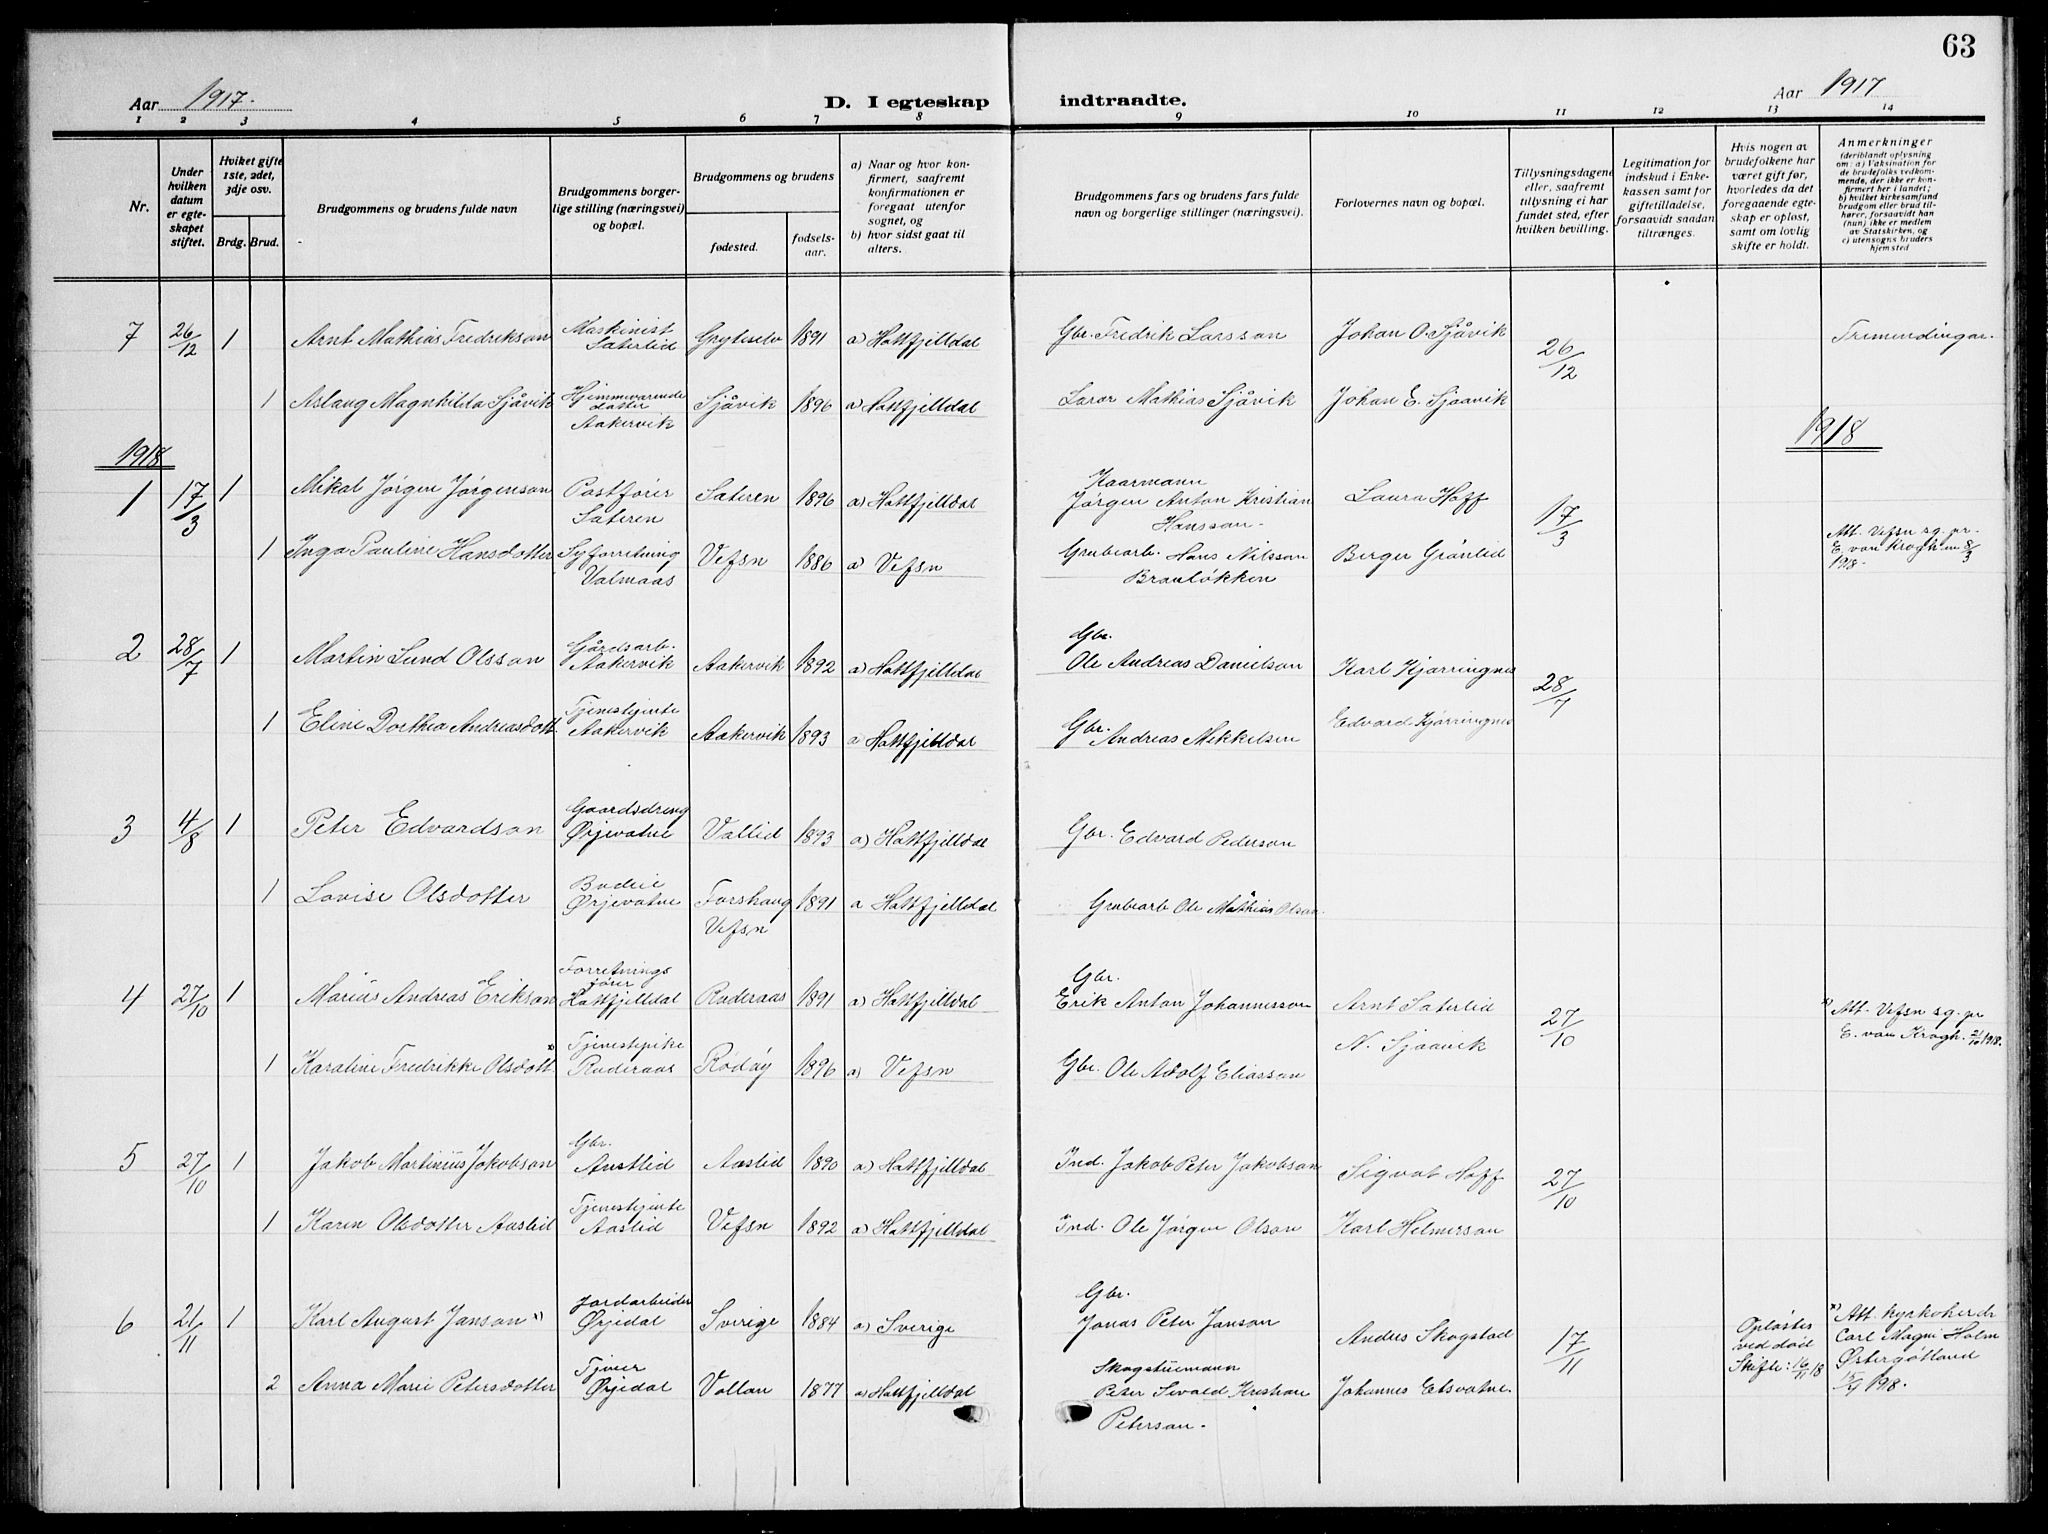 63
Aar 1917.
D. I egteskap indtraadte.
Aar 1917
1 2 3 4 5 6 7 8 9 10 11 12 13 14
Nr.
Under hvilken datum er egteskapet stiftet.
Hviket gifte 1ste, 2det, 3dje osv.
Brdg. Brud.
Brudgommens og brudens fulde navn
Brudgommens borgerlige stilling (næringsvei) og bopæl.
Brudgommens og brudens
fødested.
fødselsaar.
a) Naar og hvor konfirmert, saafremt konfirmationen er foregaat utenfor sognet, og
b) hvor sidst gaat til alters.
Brudgommens fars og brudens fars fulde navn og borgerlige stillinger (næringsvei).
Forlovernes navn og bopæl.
Tillysningsdagene eller, saafremt tillysning ei har fundet sted, efter hvilken bevilling.
Legitimation for indskud i Enkekassen samt for giftetilladelse, forsaavidt saadan tiltrænges.
Hvis nogen av brudefolkene har været gift før, hvorledes da det foregaaende egteskap er opløst, samt om lovlig skifte er holdt.
Anmerkninger
(deriblandt oplysning om: a) Vaksination for de brudefolks vedkommende, der ikke er konfirmert her i landet; b) hvilket kirkesamfund brudgom eller brud tilhører, forsaavidt han (hun) ikke er medlem av Statskirken, og c) utensogns bruders hjemsted
7 26/12 1 Arnt Mathias Fredrikson Maskinist Sæterlid Grytiselv 1891 a) Hattfjelldal Gbr. Fredrik Larsson Johan O. Sjåvik 26/12 Tremendingar.
1 Aslaug Magnhilda Sjåvik Hjemmeværende datter Aakervik Sjåvik 1896 a) Hattfjelldal Lærar Mathias Sjåvik Johan E. Sjaavik
1918
1918
1 17/3 1 Mikal Jørgen Jørgenson Postfører Sæteren Sæteren 1896 a) Hattfjelldal Kaarmann Jørgen Anton Kristian Hansson. Laura Hoff 17/3
1 Inga Pauline Hansdotter Syforretning Valmaas Vefsn 1886 a) Vefsn Grubearb. Hans Nilsson Braulökken Berger Grönlid Att. Vefsn sg. pr. E. von Krogh 8/3 1918.
2 28/7 1 Martin Lund Olsson Gårdsarb. Aakervik Aakervik 1892 a) Hattfjelldal Gbr. Ole Andreas Danielson Karl Kjærringnes 28/7
1 Eline Dorthea Andreasdott. Tjenestejente Aakervik Aakervik 1893 a) Hattfjelldal Gbr. Andreas Mikkelsen Edvard Kjærringnes
3 4/8 1 Peter Edvardson Gaardsdreng Ørjevatne Vallid 1893 a) Hattfjelldal Gbr. Edvard Pederson
1 Lovise Olsdotter Budeie Ørjevatne Forshaug Vefsn 1891 a Hattfjelldal Grubearb Ole Mathias Olson
4 27/10 1 Marius Andreas Erikson Forretningsfører Hattfjelldal Ruderaas 1891 a) Hattfjelldal Gbr. Erik Anton Johannesson Arnt Sæterlid 27/10 x) Att. Vefsn sg. pr E. von Krogh. 1918.
1 Karoline Fredrikke Olsdott. x) Tjenestepike Ruderaas Rödöy 1896 a) Vefsn Gbr. Ole Adolf Eliasson N. Sjaavik
5 27/10 1 Jakob Martinius Jakobson Gbr. Austlid Aaslid 1890 a) Hattfjelldal Ind. Jakob Peter Jakobson Sigvat Hoff 27/10
1 Karen Olsdotter Aaslid Tjenestejente Aaslid Vefsn 1892 a) Hattfjelldal Ind. Ole Jørgen Olson Karl Helmerson
6 21/11 1 Karl August Janson x) Jordarbeider Ørjedal Sverige 1884 a) Sverige Gbr. Jonas Peter Janson Anders Skogstad 17/11 Opløstes ved død Skifte: 16/11 18 x) Att. kyrkoherde Carl Magni Holm Østergötland 15/9 1918.
2 Anna Marie Petersdotter Ørjedal Vollan 1877 a) Hattfjelldal Peter Sivald Kristian Peterson. Johannes Elsvatne.